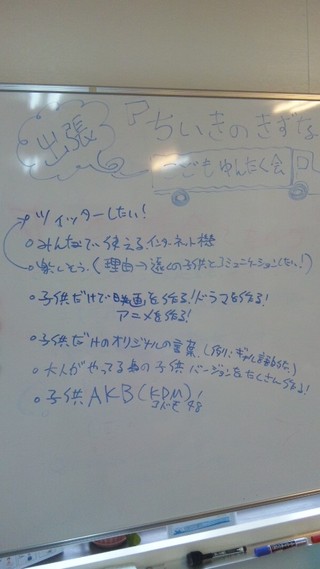 出張
ちいきのきずな
こどもゆんたく会
ツイッターしたい!
○みんなで使えるインターネット機
○楽しそう。(理由→遠くの子供とコミュニケーションしたい!)
○子供だけで映画を作る!ドラマを作る!
アニメを作る!
○子供だけのオリジナルの言葉(例:ギャル語みたいな)
○大人がやってる事の子供バージョンをたくさん作る!
○子供AKB(KDM)!
コドモ48